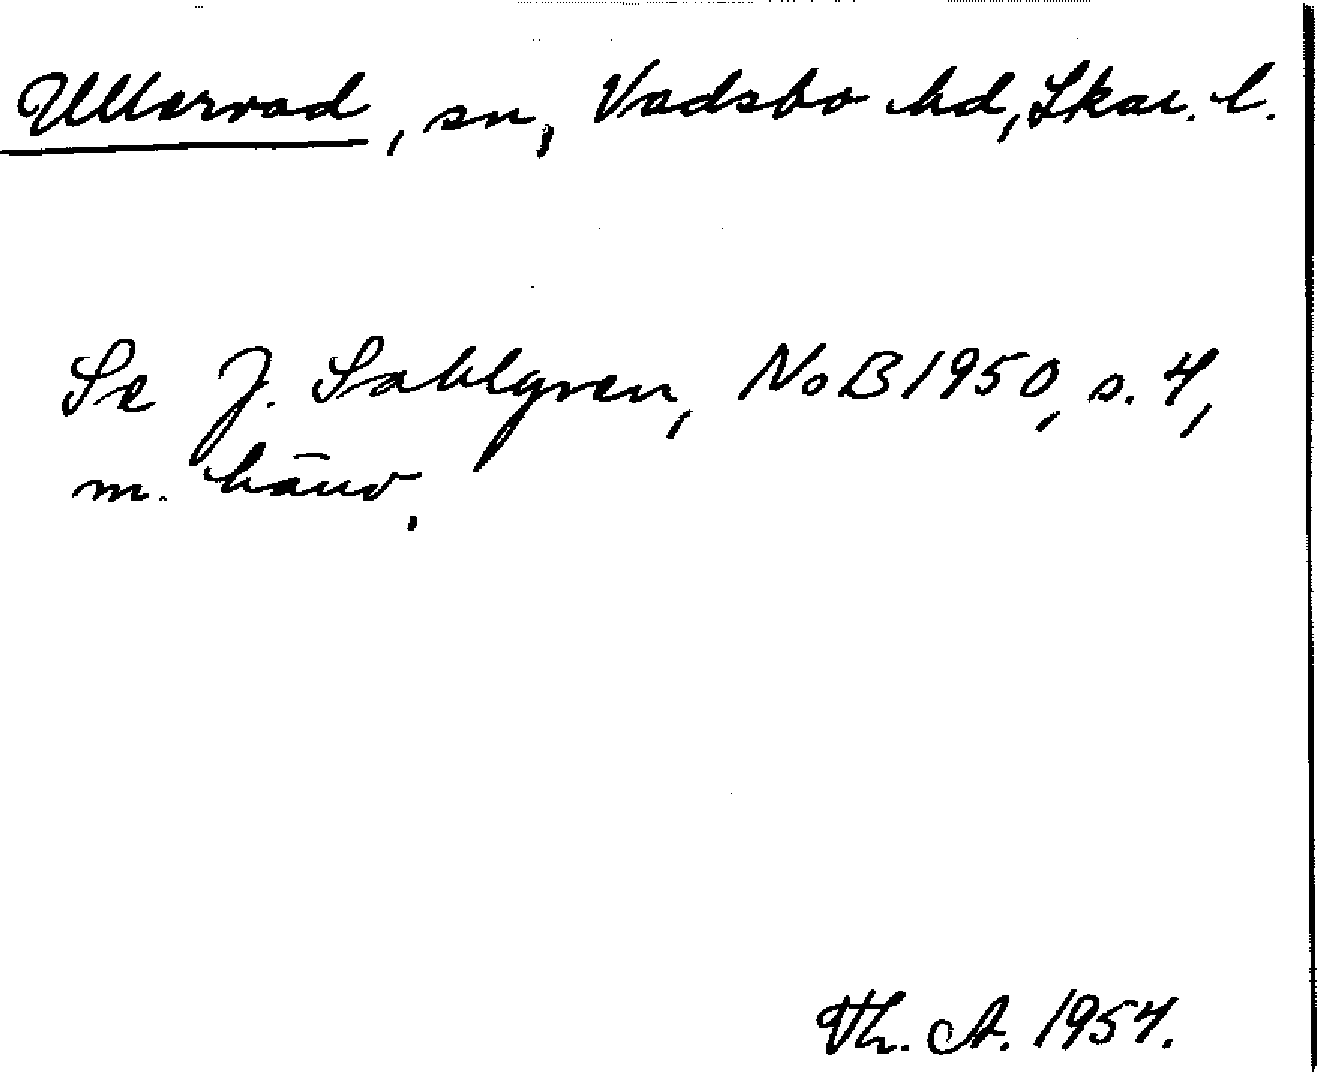 Ullervad, sn, Vadsbo hd, Skar. l.
Se J. Sahlgren, NoB 1950, s. 4,
m. hänv.
Th. A. 1954.